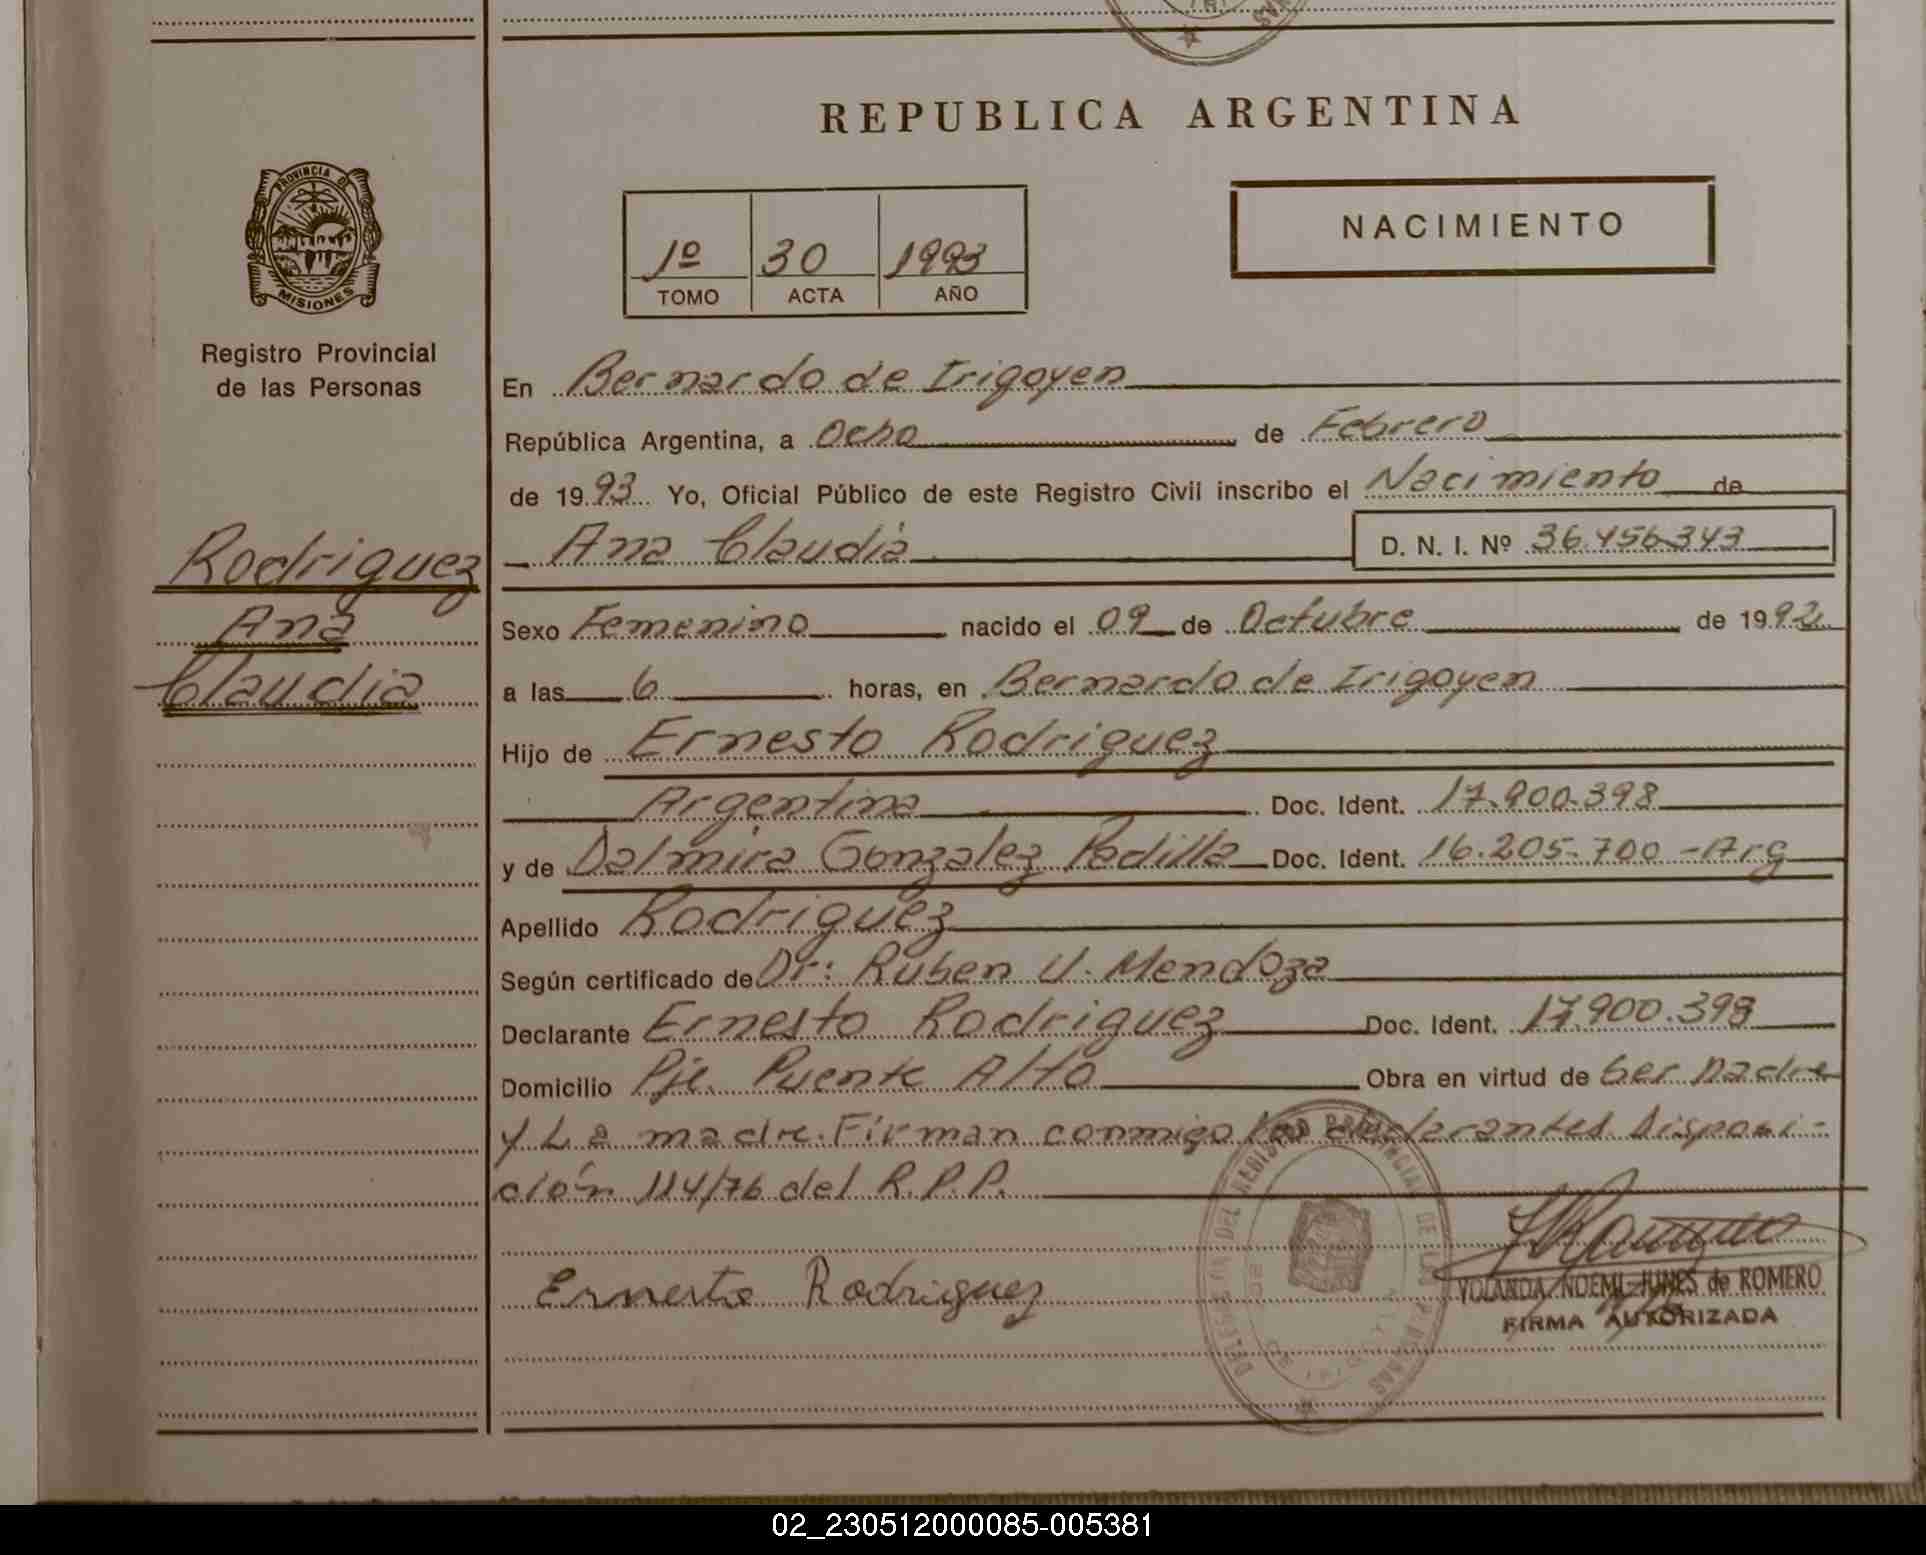 REPUBLICA ARGENTINA
PROVINCIA DE
MISIONES
Registro Provincial
de las Personas
1º 30 1993
TOMO ACTA AÑO
NACIMIENTO
En Bernardo de Irigoyen
República Argentina, a Ocho de Febrero
de 1993 Yo, Oficial Público de este Registro Civil inscribo el Nacimiento de
Ana Claudia D. N. I. Nº 36.456.343
Rodriguez
Ana
Claudia
Sexo Femenino nacido el 09 de Octubre de 1992
a las 6 horas, en Bernardo de Irigoyen
Hijo de Ernesto Rodriguez
Argentina Doc. Ident. 17.900.398
y de Dalmira Gonzalez Padilla Doc. Ident. 16.205.700 - Arg
Apellido Rodriguez
Según certificado de Dr: Ruben U. Mendoza
Declarante Ernesto Rodriguez Doc. Ident. 17.900.398
Domicilio Pje. Puente Alto Obra en virtud de Ser padre
y La madre. Firman conmigo los declarantes. Disposi-
ción 114/76 del R.P.P.
Ernesto Rodriguez
YOLANDA NOEMI JUNES de ROMERO
FIRMA AUTORIZADA
02_230512000085-005381